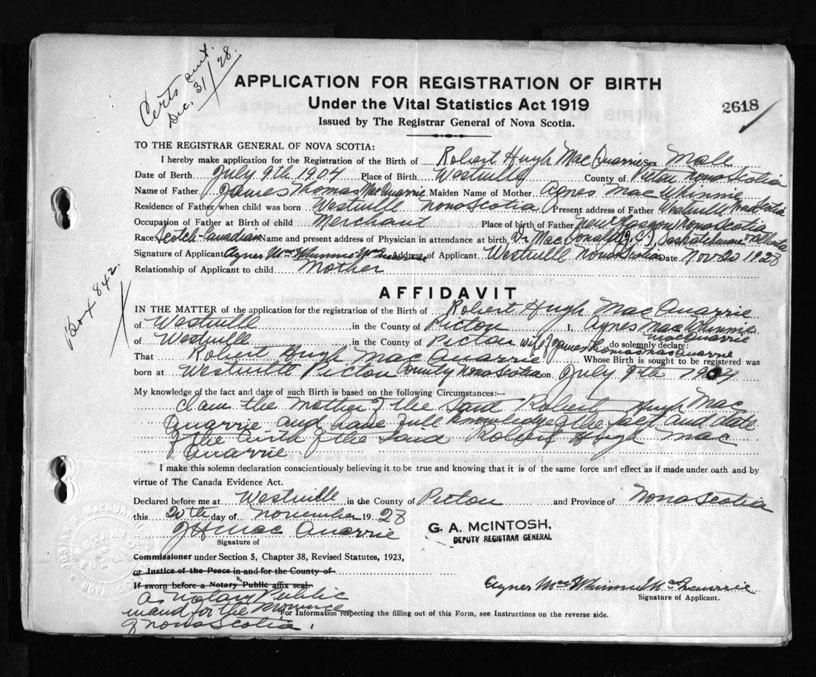 Certs sent.
Dec. 31/28.
APPLICATION FOR REGISTRATION OF BIRTH
Under the Vital Statistics Act 1919
Issued by The Registrar General of Nova Scotia.
2618
TO THE REGISTRAR GENERAL OF NOVA SCOTIA:
I hereby make application for the Registration of the Birth of Robert Hugh MacQuarrie Sex Male
Date of Birth July 9th 1904 Place of Birth Westville County of Pictou Nova Scotia
Name of Father James Thomas MacQuarrie Maiden Name of Mother Agnes MacWhinnie
Residence of Father when child was born Westville Nova Scotia Present address of Father Westville Nova Scotia
Occupation of Father at Birth of child Merchant Place of birth of Father New Glasgow Nova Scotia
Race Scotch-Canadian Name and present address of Physician in attendance at birth Dr MacDonald Saskatchewan
Signature of Applicant Agnes Address of Applicant Westville Nova Scotia Date Nov 20 1928
Relationship of Applicant to child Mother
Box 842.
AFFIDAVIT
IN THE MATTER of the application for the registration of the Birth of Robert Hugh MacQuarrie
of Westville in the County of Pictou I, Agnes MacWhinnie MacQuarrie
of Westville in the County of Pictou wife of James Thomas MacQuarrie do solemnly declare:
That Robert Hugh MacQuarrie Whose Birth is sought to be registered was
born at Westville Pictou County Nova Scotia on July 9th 1904
My knowledge of the fact and date of such Birth is based on the following Circumstances:--
I am the mother of the said Robert Hugh Mac
Quarrie and have full knowledge of the fact and date
of the birth of the said Robert Hugh Mac
Quarrie.
I make this solemn declaration conscientiously believing it to be true and knowing that it is of the same force and effect as if made under oath and by
virtue of The Canada Evidence Act.
Declared before me at Westville in the County of Pictou and Province of Nova Scotia
this 20th day of November 1928
J H MacQuarrie
Signature of
G. A. McINTOSH,
DEPUTY REGISTRAR GENERAL
Commissioner under Section 5, Chapter 38, Revised Statutes, 1923,
or Justice of the Peace in and for the County of
If sworn before a Notary Public affix seal
A Notary Public
in and for the Province
of Nova Scotia.
Agnes MacWhinnie MacQuarrie
Signature of Applicant.
For Information respecting the filling out of this Form, see Instructions on the reverse side.